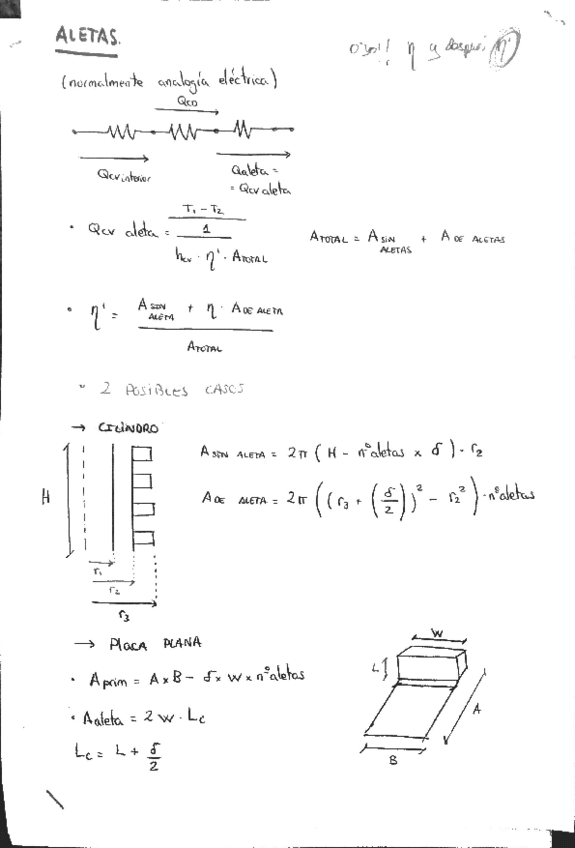 ALETAS.
ojo!! η y después η'
(normalmente analogía eléctrica)
Qco
Qcv interior
Qaleta =
= Qcv aleta
• Qcv aleta = (T₁ - T₂) / (1 / (hcv · η' · ATOTAL))
ATOTAL = A SIN ALETAS + A DE ALETAS
• η' = (A SIN ALETA + η · A DE ALETA) / ATOTAL
• 2 POSIBLES CASOS
→ CILINDRO
A SIN ALETA = 2π (H - nºaletas x δ) · r₂
A DE ALETA = 2π ((r₃ + (δ/2))² - r₂²) · nºaletas
H
r₁
r₂
r₃
→ PLACA PLANA
• Aprim = A x B - δ x W x nºaletas
• Aaleta = 2 W · Lc
Lc = L + δ/2
W
L
A
B